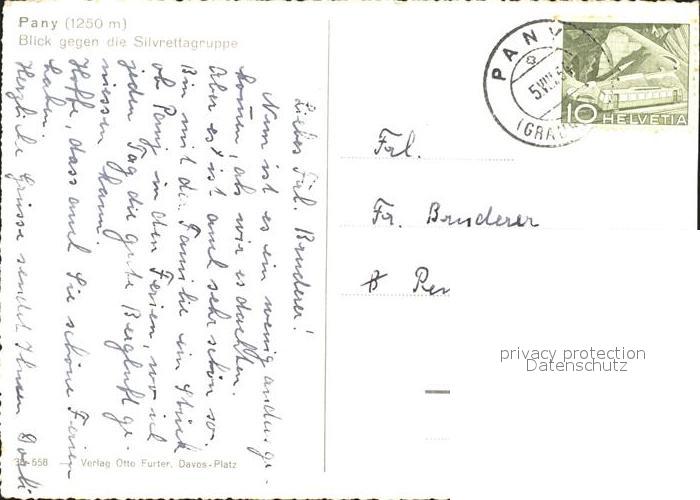 Pany (1250 m)
Blick gegen die Silvrettagruppe
Liebes Frl. Bruderer!
Nun ist es ein wenig anders ge-
kommen, als wir es dachten.
Aber es ist auch sehr schön so.
Bin mit der Familie ein Stück
ob Pany in den Ferien, wo ich
jeden Tag die gute Bergluft ge-
niessen kann.
Hoffe, dass auch Sie schöne Ferien
haben.
Herzliche Grüsse sendet Ihnen Dorli
38-558 Verlag Otto Furter, Davos-Platz
PANY
5.VIII.
(GRAU
10 HELVETIA
Frl.
Fr. Bruderer
privacy protection
Datenschutz